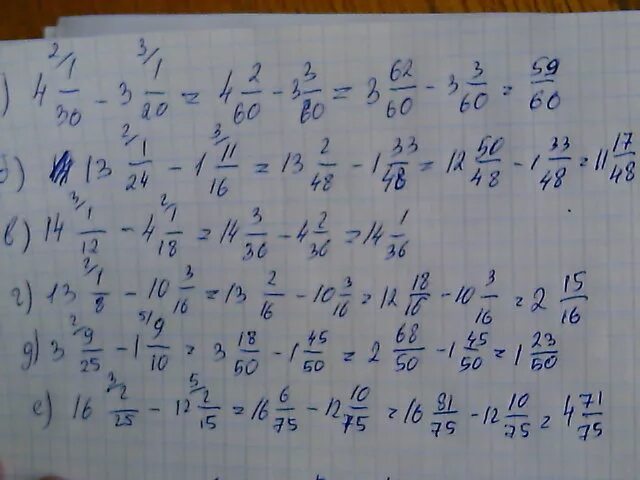 ) 4 2/1/30 - 3 3/1/20 = 4 2/60 - 3 3/60 = 3 62/60 - 3 3/60 = 59/60
) 13 2/1/24 - 1 3/11/16 = 13 2/48 - 1 33/48 = 12 50/48 - 1 33/48 = 11 17/48
в) 14 3/1/12 - 4 2/1/18 = 14 3/36 - 4 2/36 = 14 1/36
г) 13 2/1/8 - 10 3/16 = 13 2/16 - 10 3/16 = 12 18/16 - 10 3/16 = 2 15/16
д) 3 2/9/25 - 1 5/9/10 = 3 18/50 - 1 45/50 = 2 68/50 - 1 45/50 = 1 23/50
е) 16 3/2/25 - 12 5/2/15 = 16 6/75 - 12 10/75 = 16 81/75 - 12 10/75 = 4 71/75